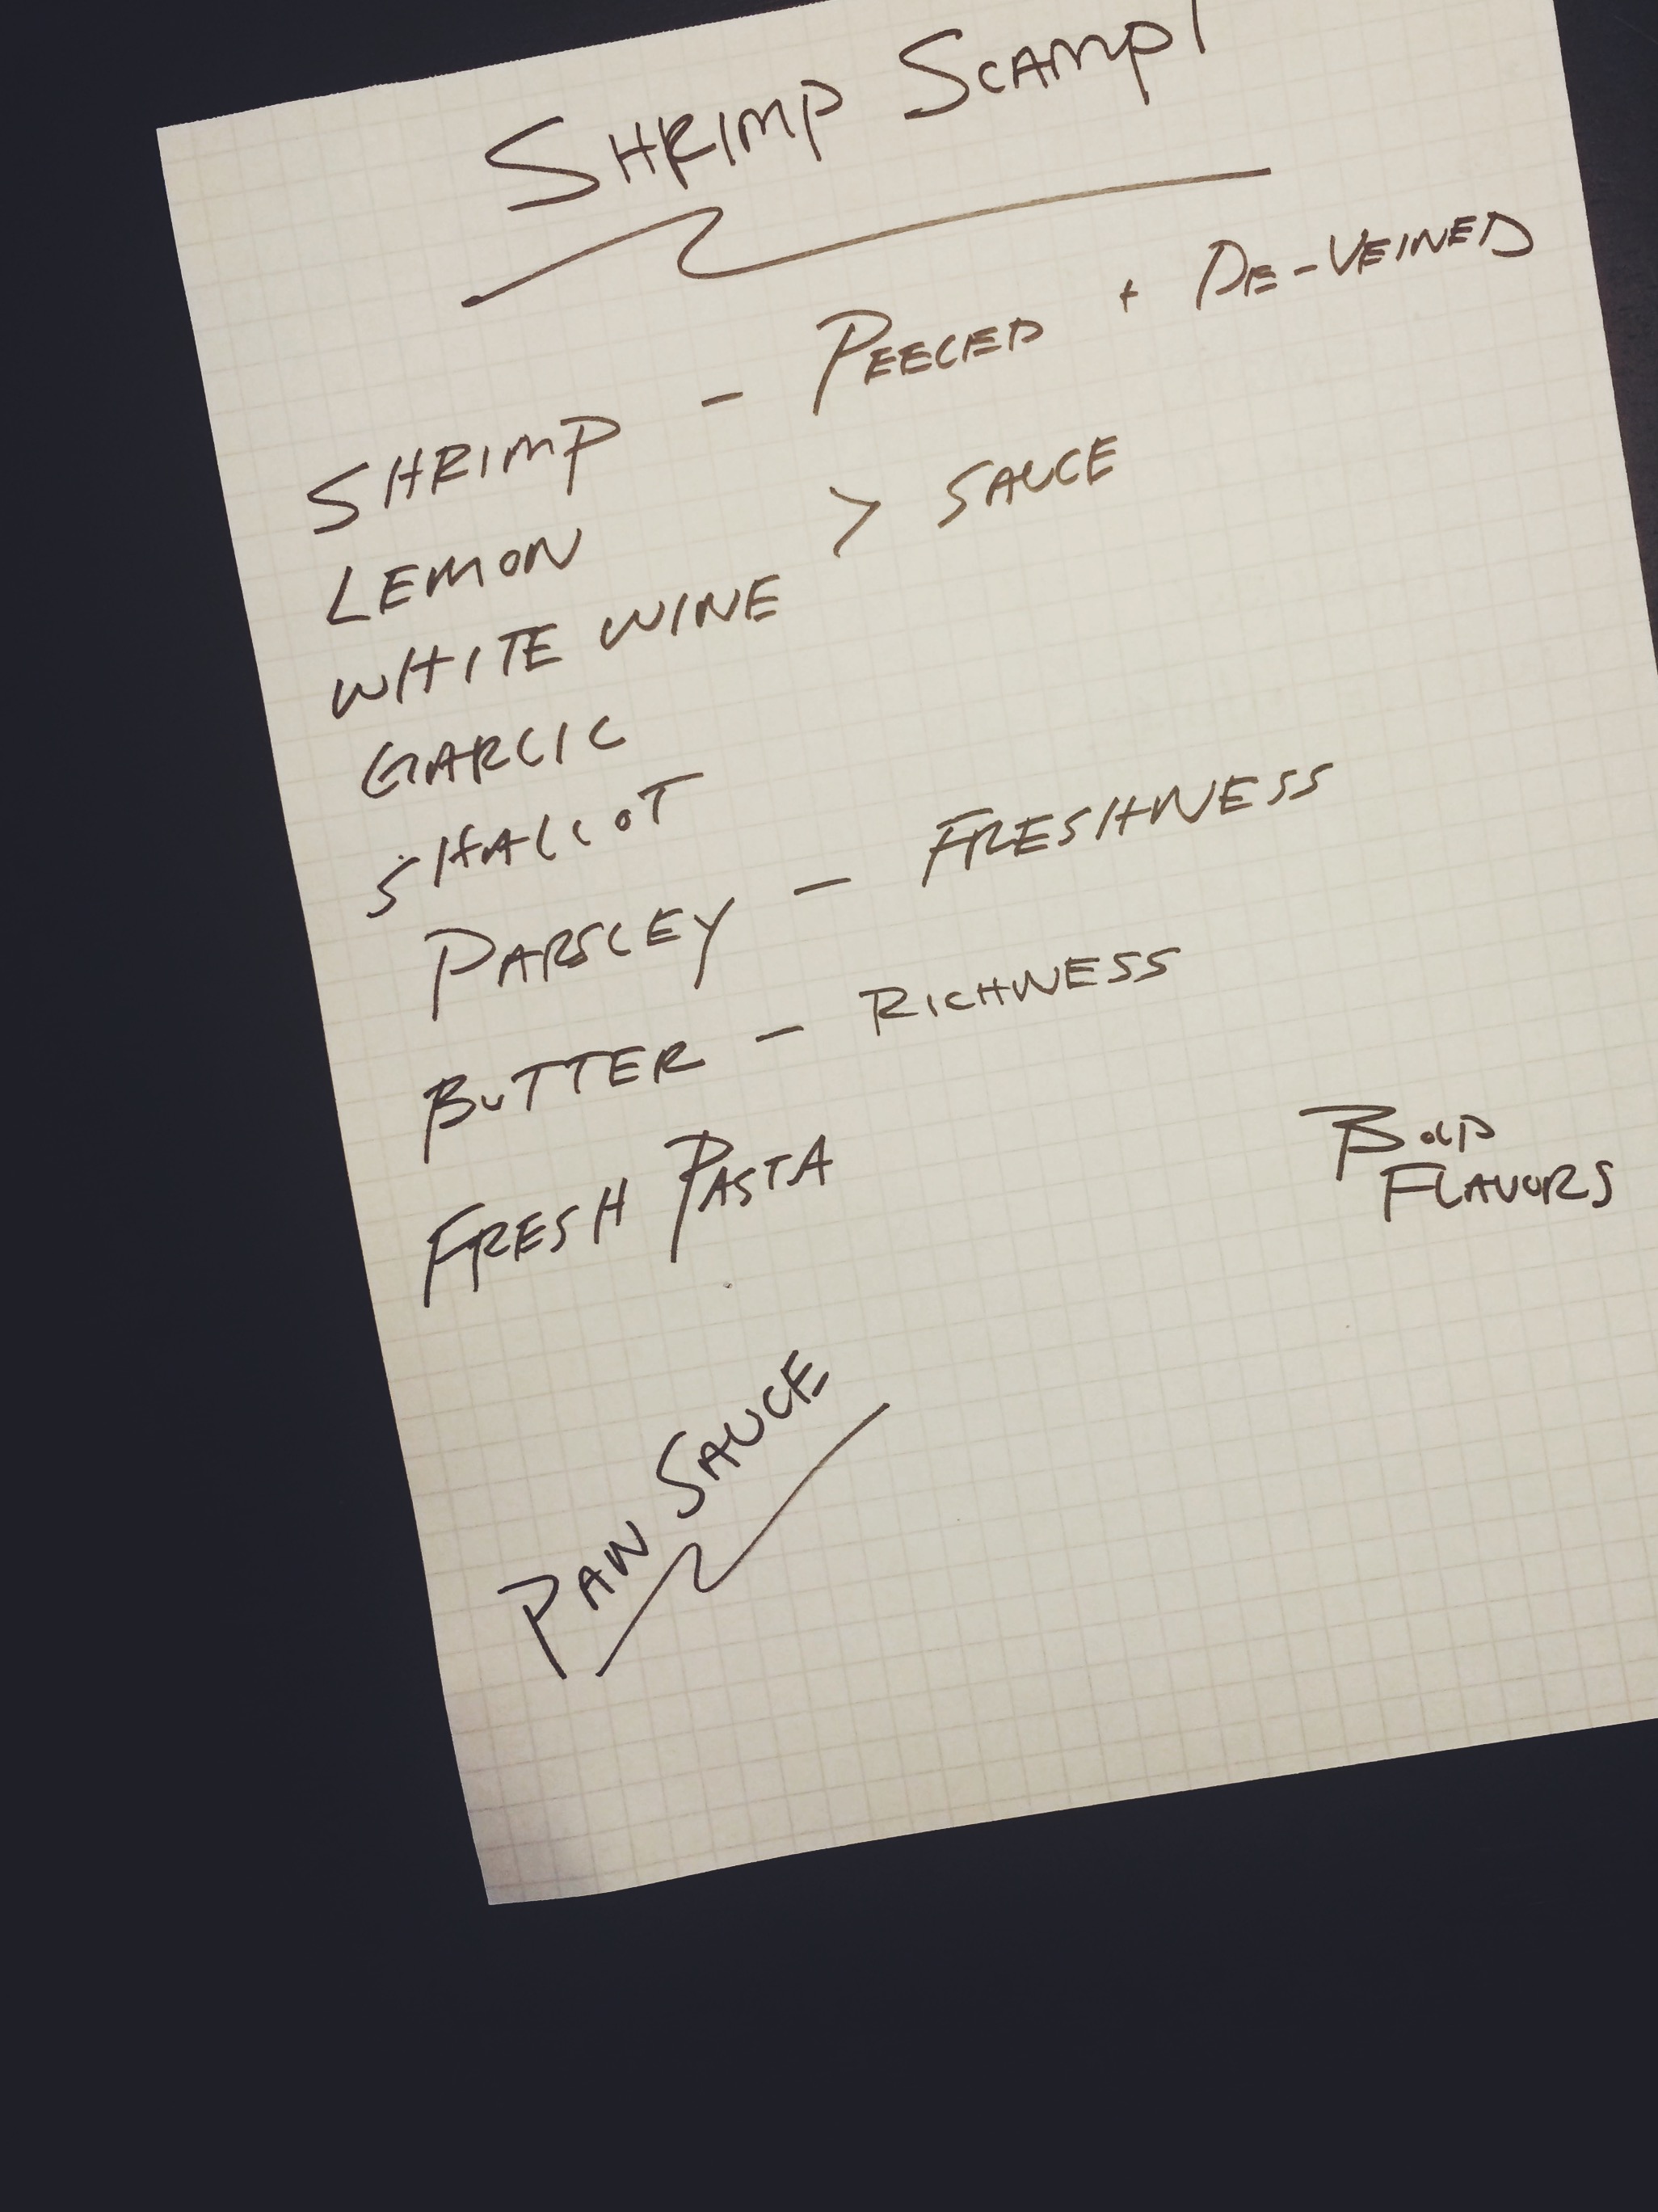 SHRIMP SCAMPI
SHRIMP - PEELED + DE-VEINED
LEMON
> SAUCE
WHITE WINE
GARLIC
SHALLOT
PARSLEY - FRESHNESS
BUTTER - RICHNESS
FRESH PASTA
BOLD
FLAVORS
PAN SAUCE